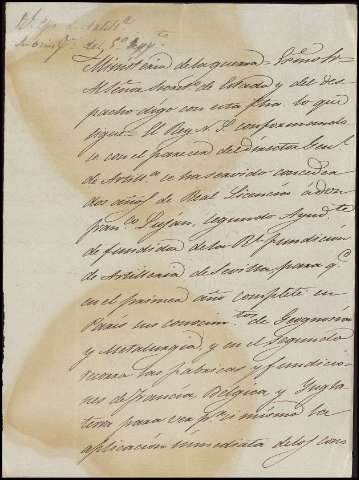 Ministerio de la guerra = Exmo Sr.
Al Señor Secret.º de Estado y del Des-
pacho digo con esta fha lo que
sigue = El Rey N. S. conformando
se con el parecer del Director Genl.
de Artill.ª se ha servido conceder
dos años de Real Licencia á don
Fran.co Luján, segundo Ayud.te
de fundidor de la Rl. fundicion
de Artilleria de Sevilla para q.e
en el primer año complete en
Paris sus conocim.tos de Geognosia
y Metalurgia, y en el segundo
recorra las fabricas y fundicio-
nes de Francia Belgica y Ingla-
terra para ver p.r si mismo la
aplicación inmediata de los cono